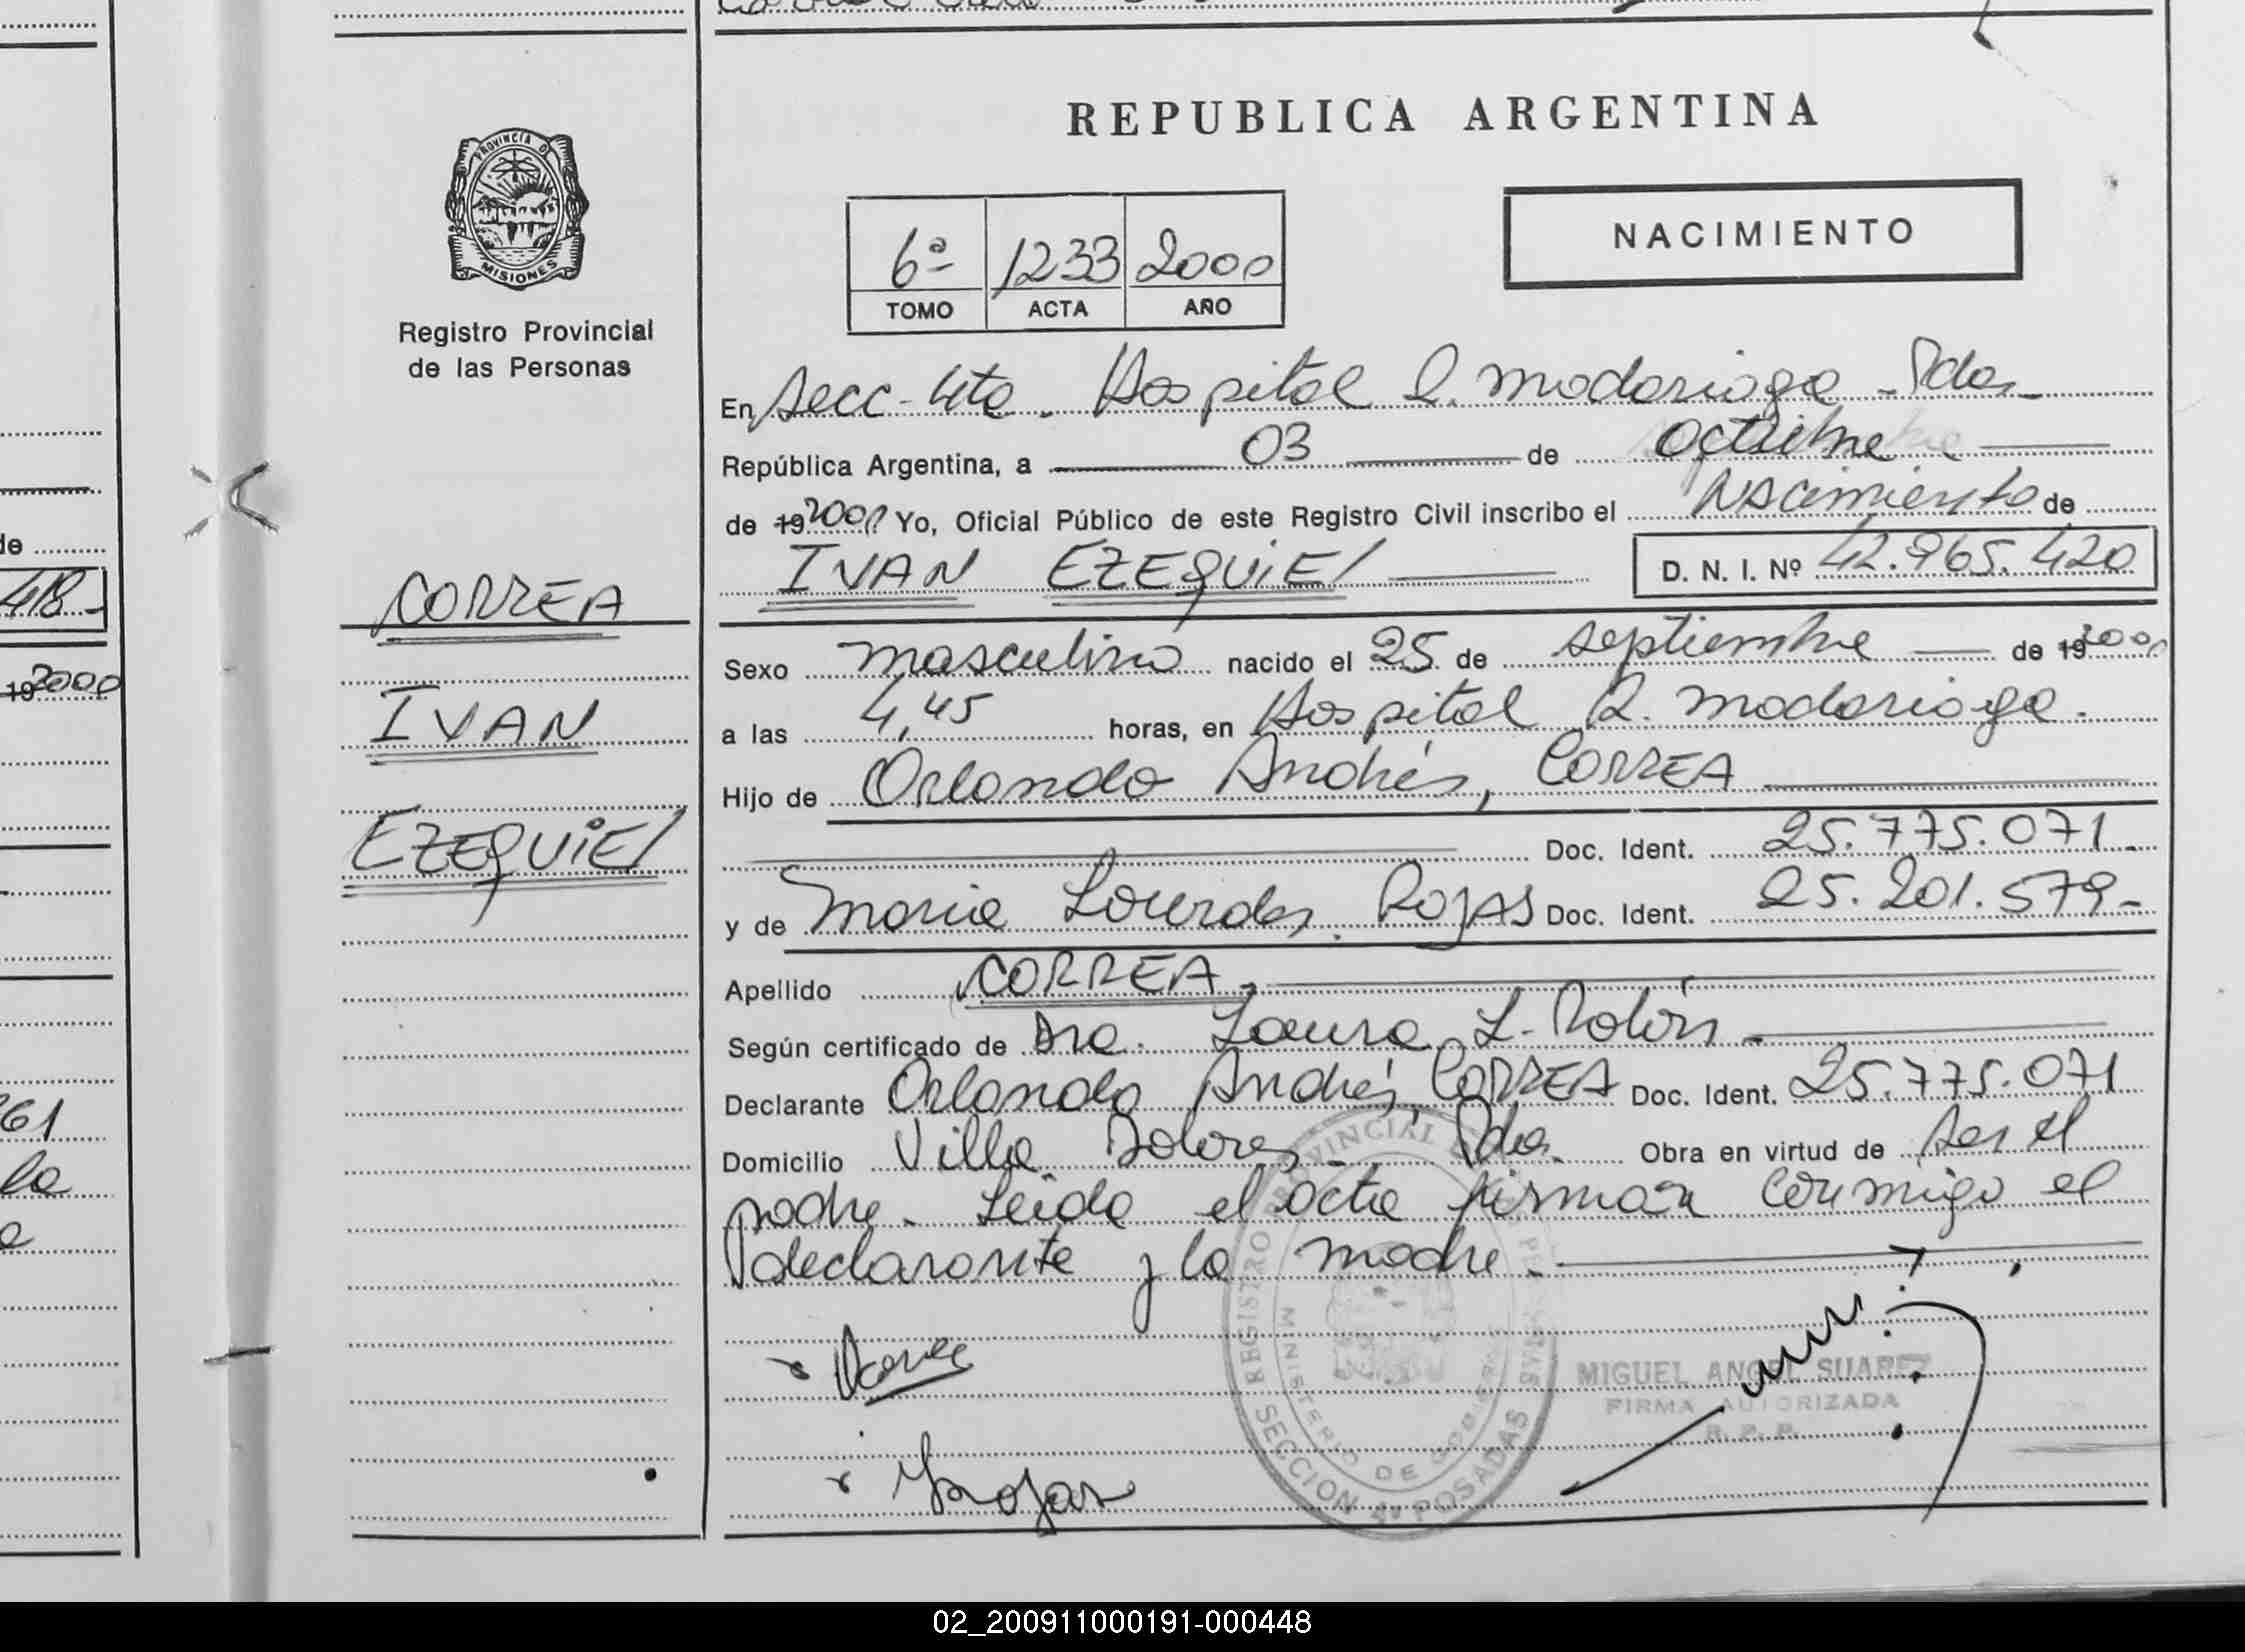 REPUBLICA ARGENTINA
PROVINCIA D
MISIONES
Registro Provincial
de las Personas
6ª 1233 2000
TOMO ACTA AÑO
NACIMIENTO
En Secc. 4ta. Hospital R. Madariaga - Pdas -
República Argentina, a 03 de octubre
de 19 2000 Yo, Oficial Público de este Registro Civil inscribo el Nacimiento de
IVAN EZEQUIEL D. N. I. Nº 42.965.420
CORREA
IVAN
EZEQUIEL
Sexo masculino nacido el 25 de septiembre de 19 2000
a las 4,45 horas, en Hospital R. Madariaga.
Hijo de Orlando Andrés, CORREA
Doc. Ident. 25.775.071.-
y de Maria Lourdes ROJAS Doc. Ident. 25.201.579-
Apellido CORREA.-
Según certificado de Dra. Laura L. Rolón -
Declarante Orlando Andrés, CORREA Doc. Ident. 25.775.071
Domicilio Villa Dolores - Pdas. Obra en virtud de ser el
padre. Leida el acta firman conmigo el
declarante y la madre.-
Rojas
REGISTRO PROVINCIAL DE LAS PERSONAS
MINISTERIO DE GOBIERNO
SECCION 4ª POSADAS
MIGUEL ANGEL SUAREZ
FIRMA AUTORIZADA
R. P. P.
de
418-
19 2000
261
la
02_200911000191-000448